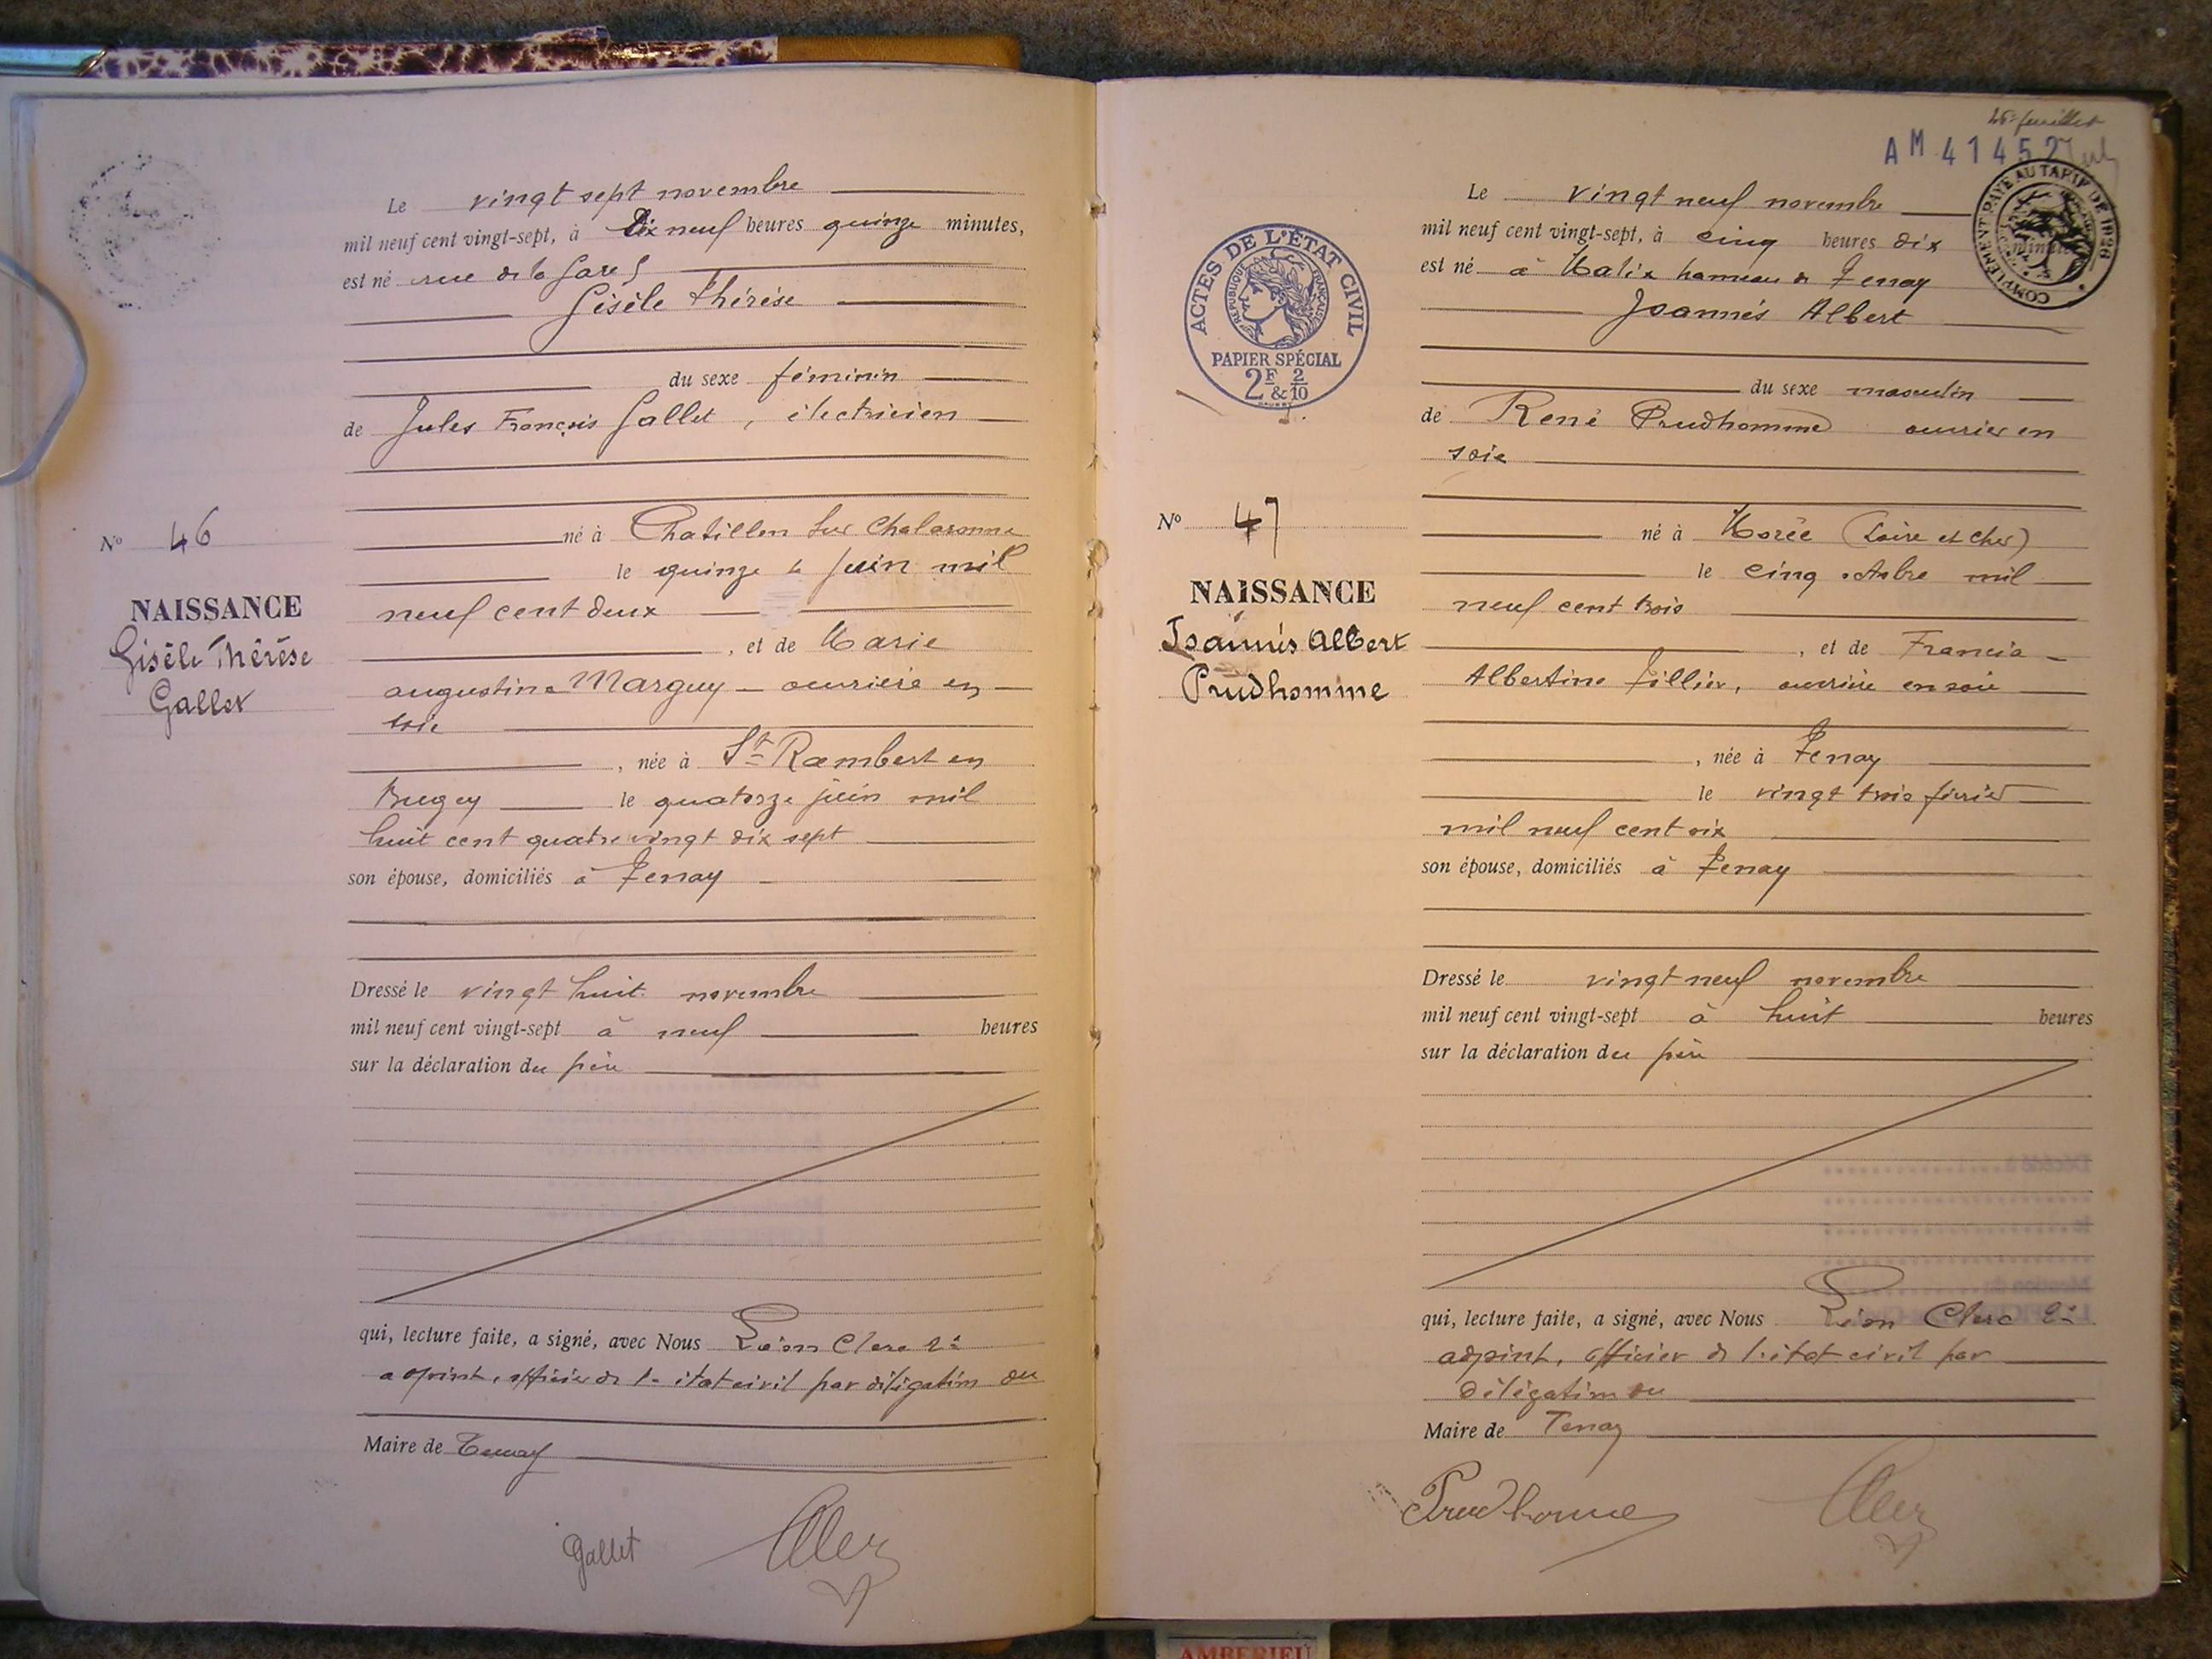 Le vingt sept novembre
mil neuf cent vingt-sept, à Dix neuf heures quinze minutes,
est né rue de la Gare
Gisèle Thérèse
du sexe féminin
de Jules François Gallet, électricien
né à Chatillon sur Chalaronne
le quinze juin mil
neuf cent deux
, et de Marie
augustine Marguy ouvrière en
soie
, née à St Rambert en
Bugey le quatorze juin mil
huit cent quatre vingt dix sept
son épouse, domiciliés à Tenay
Dressé le vingt huit novembre
mil neuf cent vingt-sept à neuf heures
sur la déclaration du père
qui, lecture faite, a signé, avec Nous Léon Clerc 2e
adjoint, officier de l'état civil par délégation du
Maire de Tenay
Gallet
Clerc
No 46
NAISSANCE
Gisèle Thérèse
Gallet
46e feuillet
AM 41452
COMPLEMENT PAYE AU TARIF DE 1926
Le vingt neuf novembre
mil neuf cent vingt-sept, à cinq heures dix minutes
est né à Malix hameau de Tenay
Joannès Albert
du sexe masculin
de René Prudhomme ouvrier en
soie
né à Morée (Loire et Cher)
le cinq octobre mil
neuf cent trois
, et de Francia
Albertine Tillier, ouvrière en soie
, née à Tenay
le vingt trois février
mil neuf cent six
son épouse, domiciliés à Tenay
Dressé le vingt neuf novembre
mil neuf cent vingt-sept à huit heures
sur la déclaration du père
qui, lecture faite, a signé, avec Nous Léon Clerc 2e
adjoint, officier de l'état civil par
délégation du
Maire de Tenay
Prudhomme
Clerc
ACTES DE L'ÉTAT CIVIL
RÉPUBLIQUE FRANÇAISE
PAPIER SPÉCIAL
2F & 2/10
No 47
NAISSANCE
Joannès Albert
Prudhomme
AMBERIEU